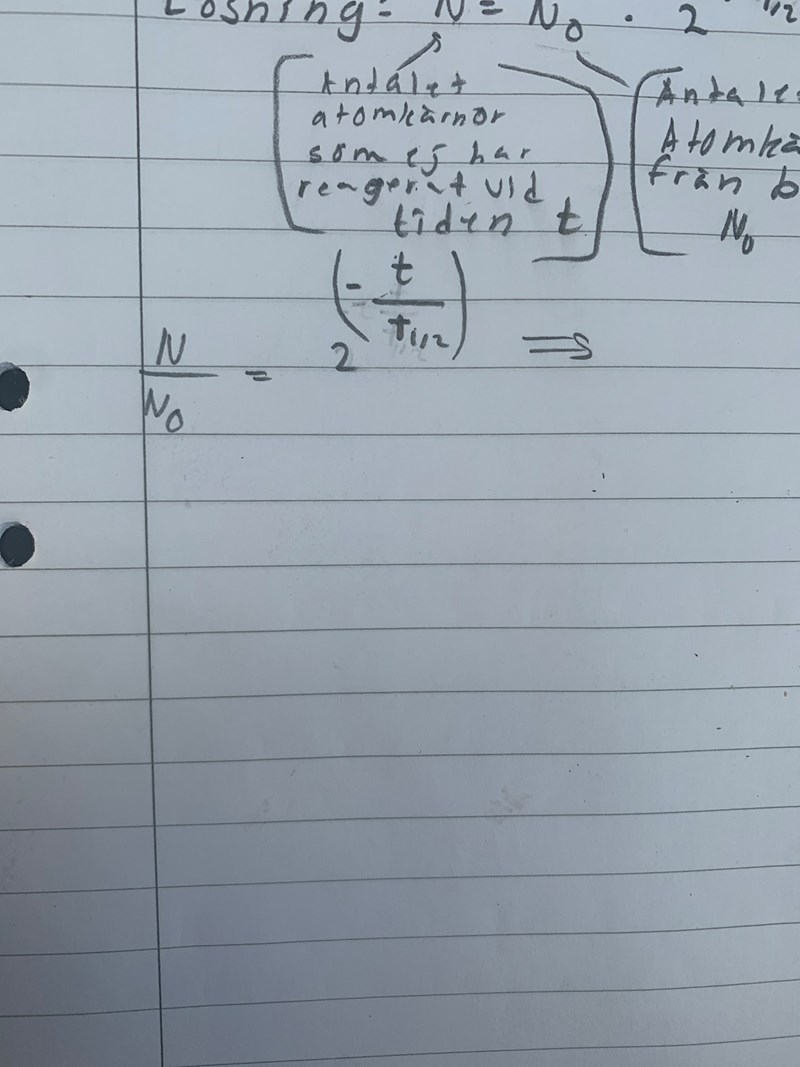 Lösning: N = N0 · 2 1/2
Antalet
atomkärnor
som ej har
reagerat vid
tiden t
Antale
Atomkä
från b
N0
N/N0 = 2^(- t/t1/2) ⇒